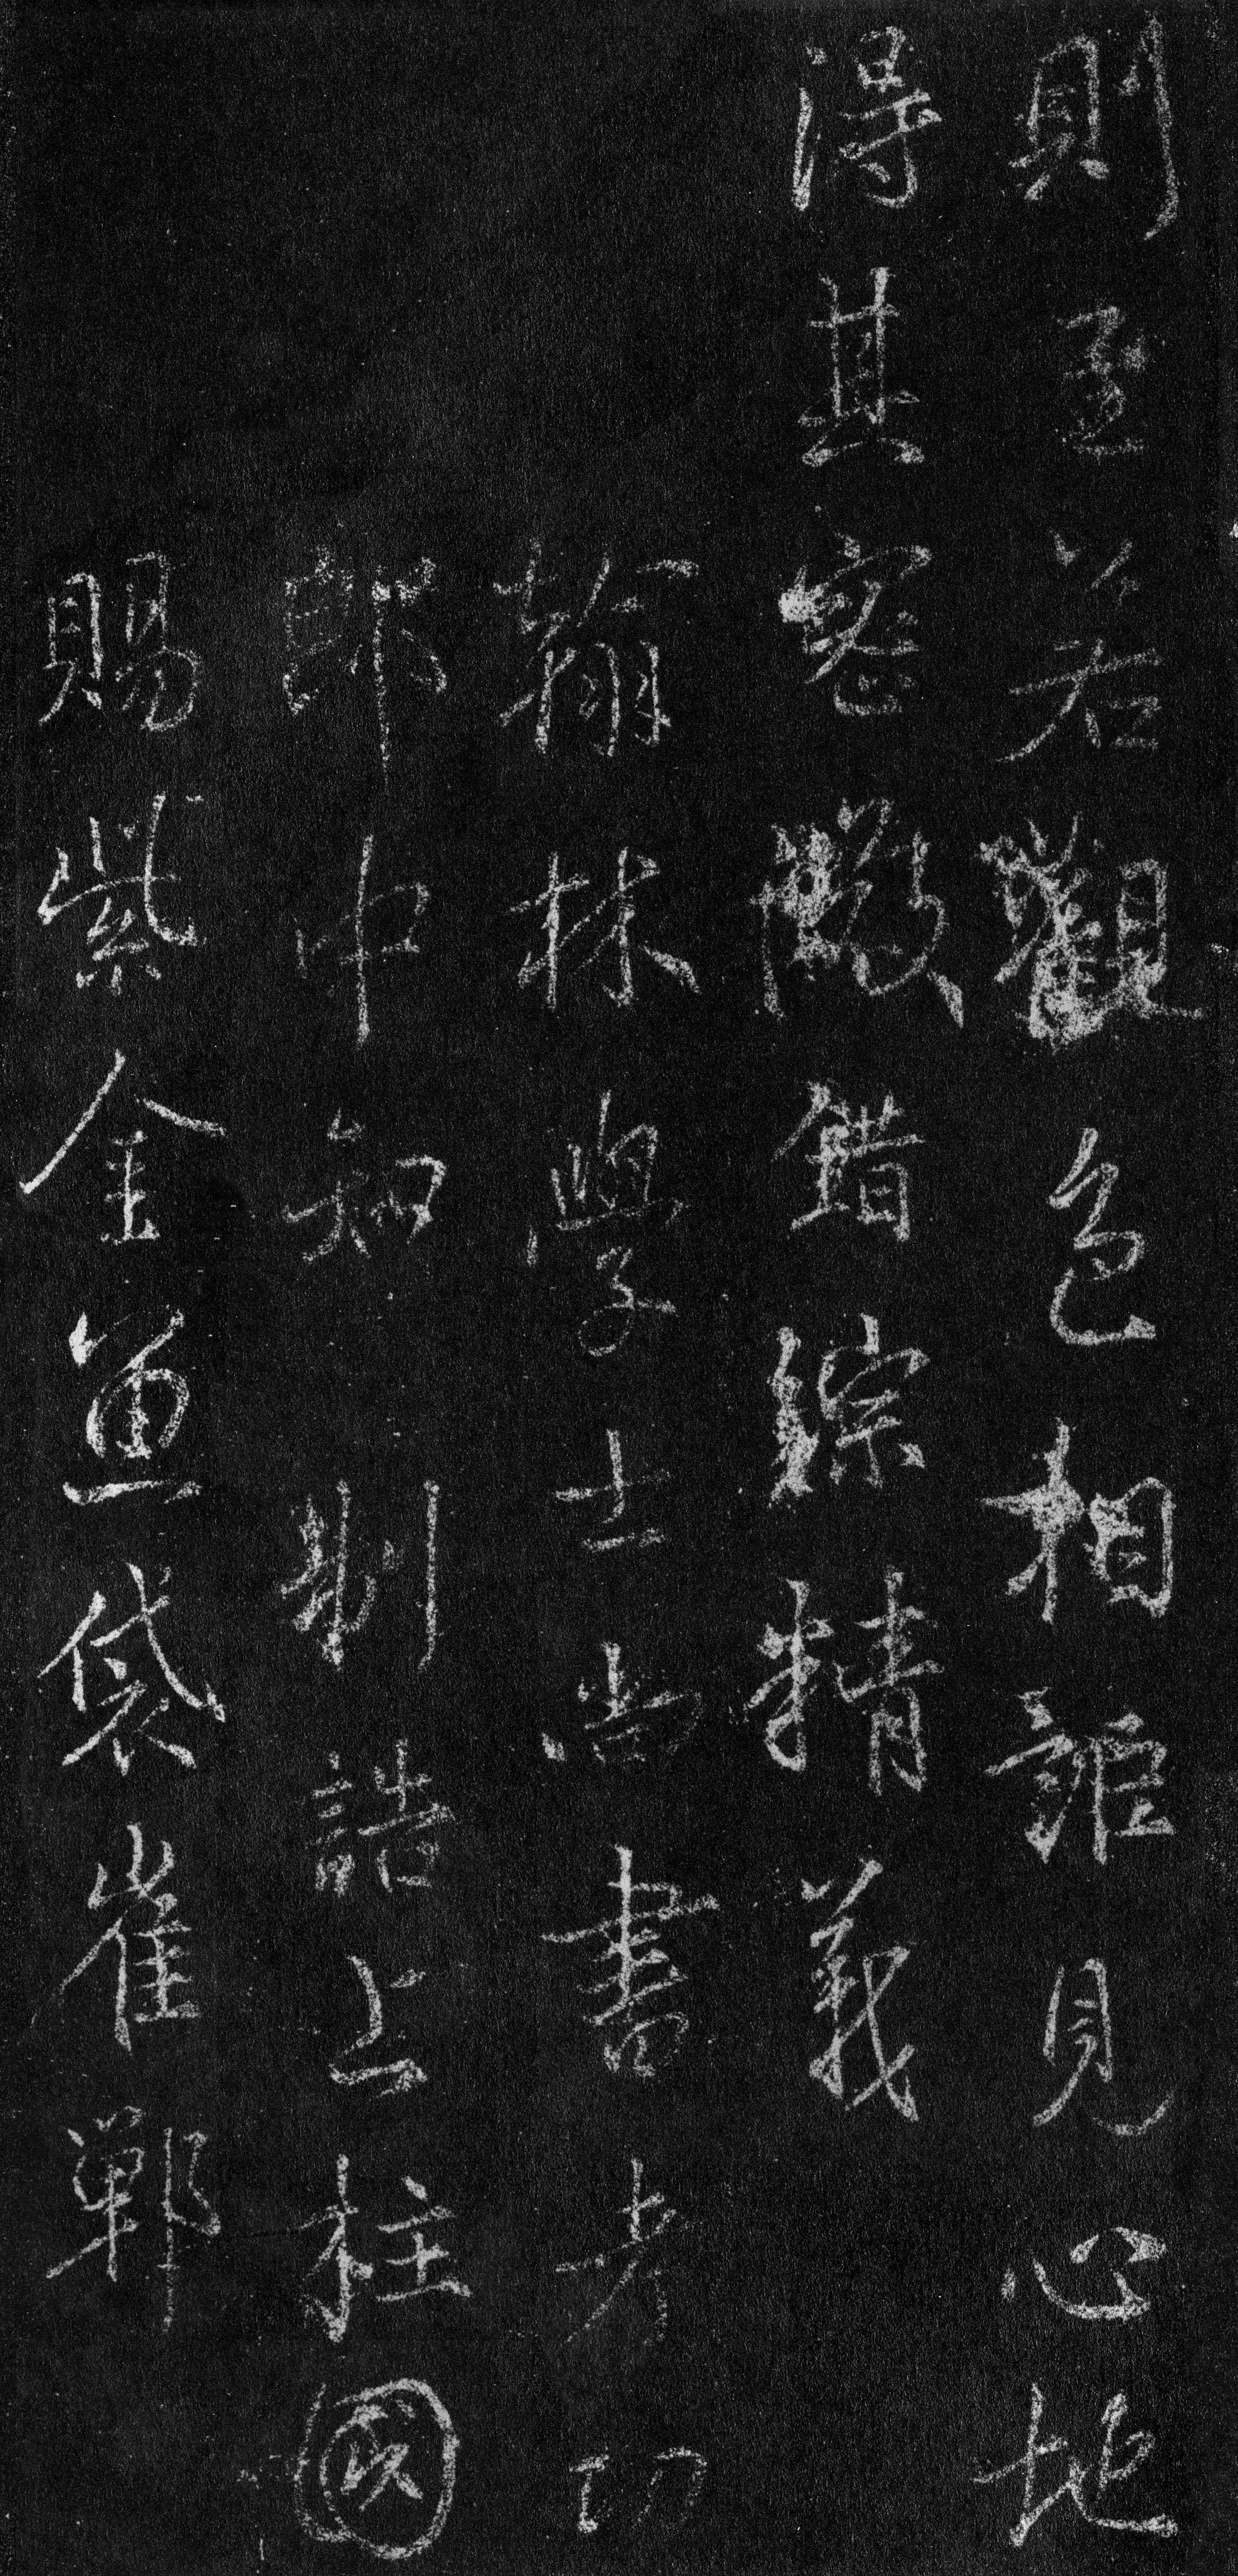 則至若觀色相誰見心地
得其密微錯綜精義
翰林學士尚書考功
郎中知制誥上柱國
賜紫金魚袋崔鄲